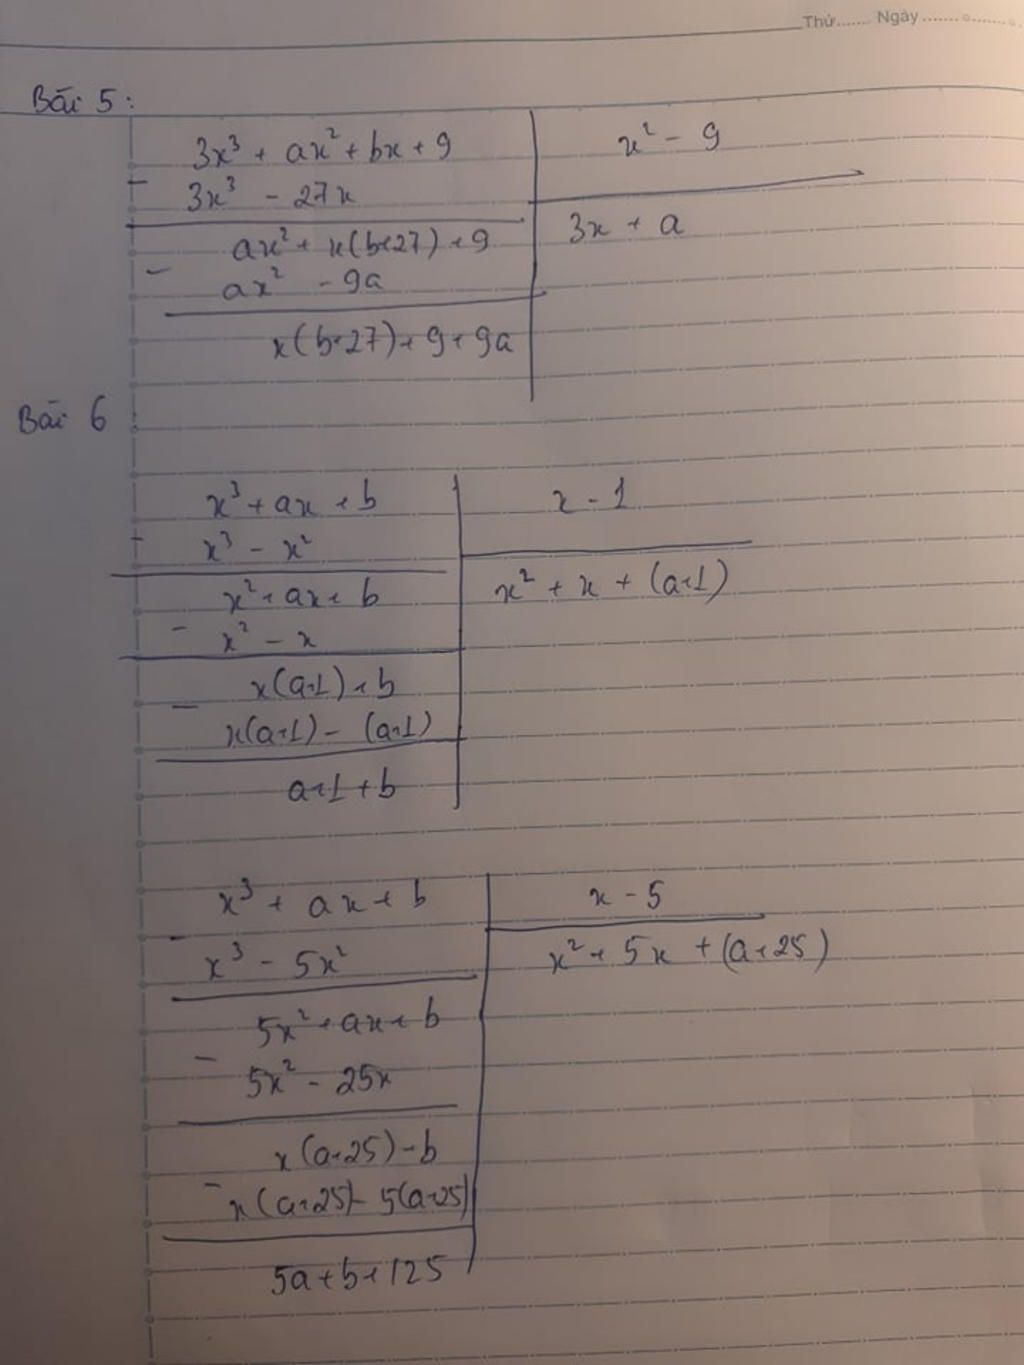 Thứ....... Ngày ....................
Bài 5 :
3x³ + ax² + bx + 9
x² - 9
- 3x³ - 27x
3x + a
ax² + x(b+27) + 9
- ax² - 9a
x(b+27) + 9 + 9a
Bài 6 :
x³ + ax + b
x - 1
- x³ - x²
x² + x + (a+1)
x² + ax + b
- x² - x
x(a+1) + b
- x(a+1) - (a+1)
a+1 + b
x³ + ax + b
x - 5
- x³ - 5x²
x² + 5x + (a+25)
5x² + ax + b
- 5x² - 25x
x(a+25) - b
- x(a+25) - 5(a+25)
5a + b + 125